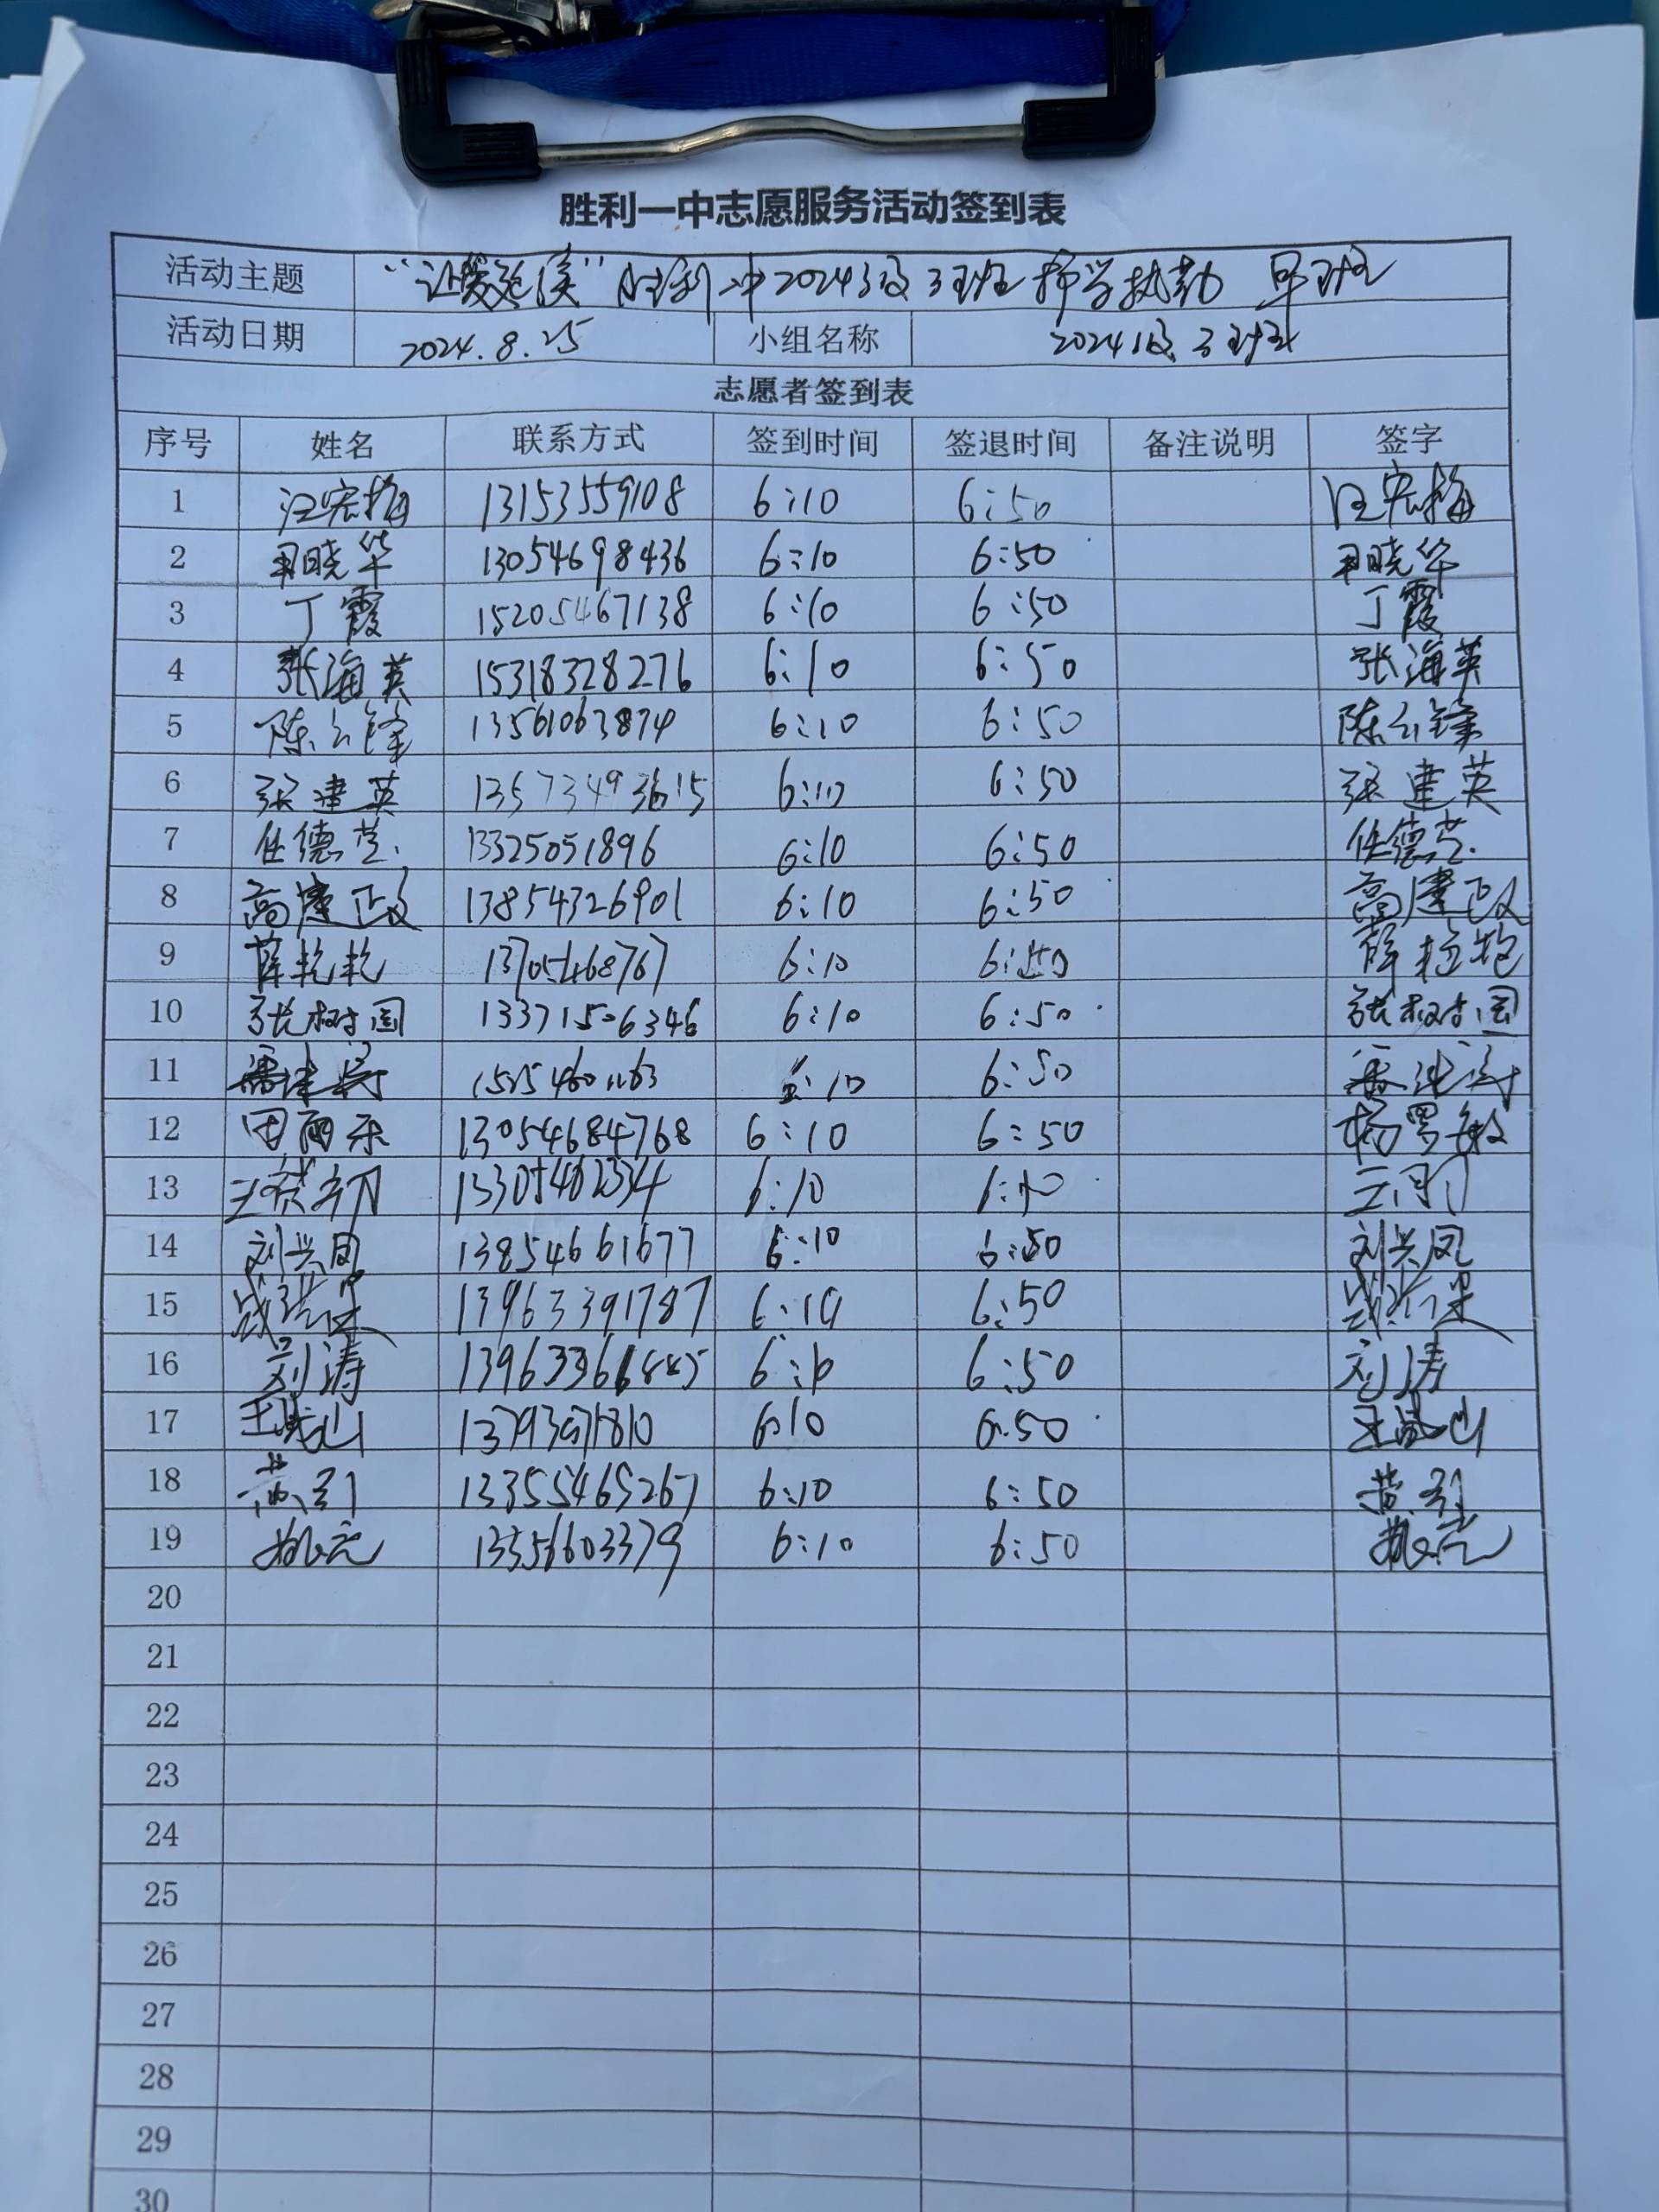 胜利一中志愿服务活动签到表
活动主题 2024级3班护学执勤 早班
活动日期 2024.8.25 小组名称 2024级3班
志愿者签到表
序号 姓名 联系方式 签到时间 签退时间 备注说明 签字
1 汪宏梅 13153559108 6:10 6:50 汪宏梅
2 晓华 13054698436 6:10 6:50 晓华
3 丁霞 15205467138 6:10 6:50 丁霞
4 张海英 15318328276 6:10 6:50 张海英
5 陈云锋 13561063874 6:10 6:50 陈云锋
6 张建英 13573493615 6:10 6:50 张建英
7 任德芝 13325051896 6:10 6:50 任德芝
8 高建政 13854326901 6:10 6:50 高建政
9 薛乾乾 13705468767 6:10 6:50 薛
10 张树国 13371506346 6:10 6:50 张树国
11 6:10 6:50
12 田雨禾 13054684768 6:10 6:50 杨
13 王 6:10 王
14 刘兴凤 13854661677 6:10 6:50 刘兴凤
15 战 13963391787 6:10 6:50 战
16 刘涛 6:10 6:50 刘涛
17 王 山 6:10 6:50 王 山
18 13355465267 6:10 6:50
19 13356603379 6:10 6:50
20
21
22
23
24
25
26
27
28
29
30